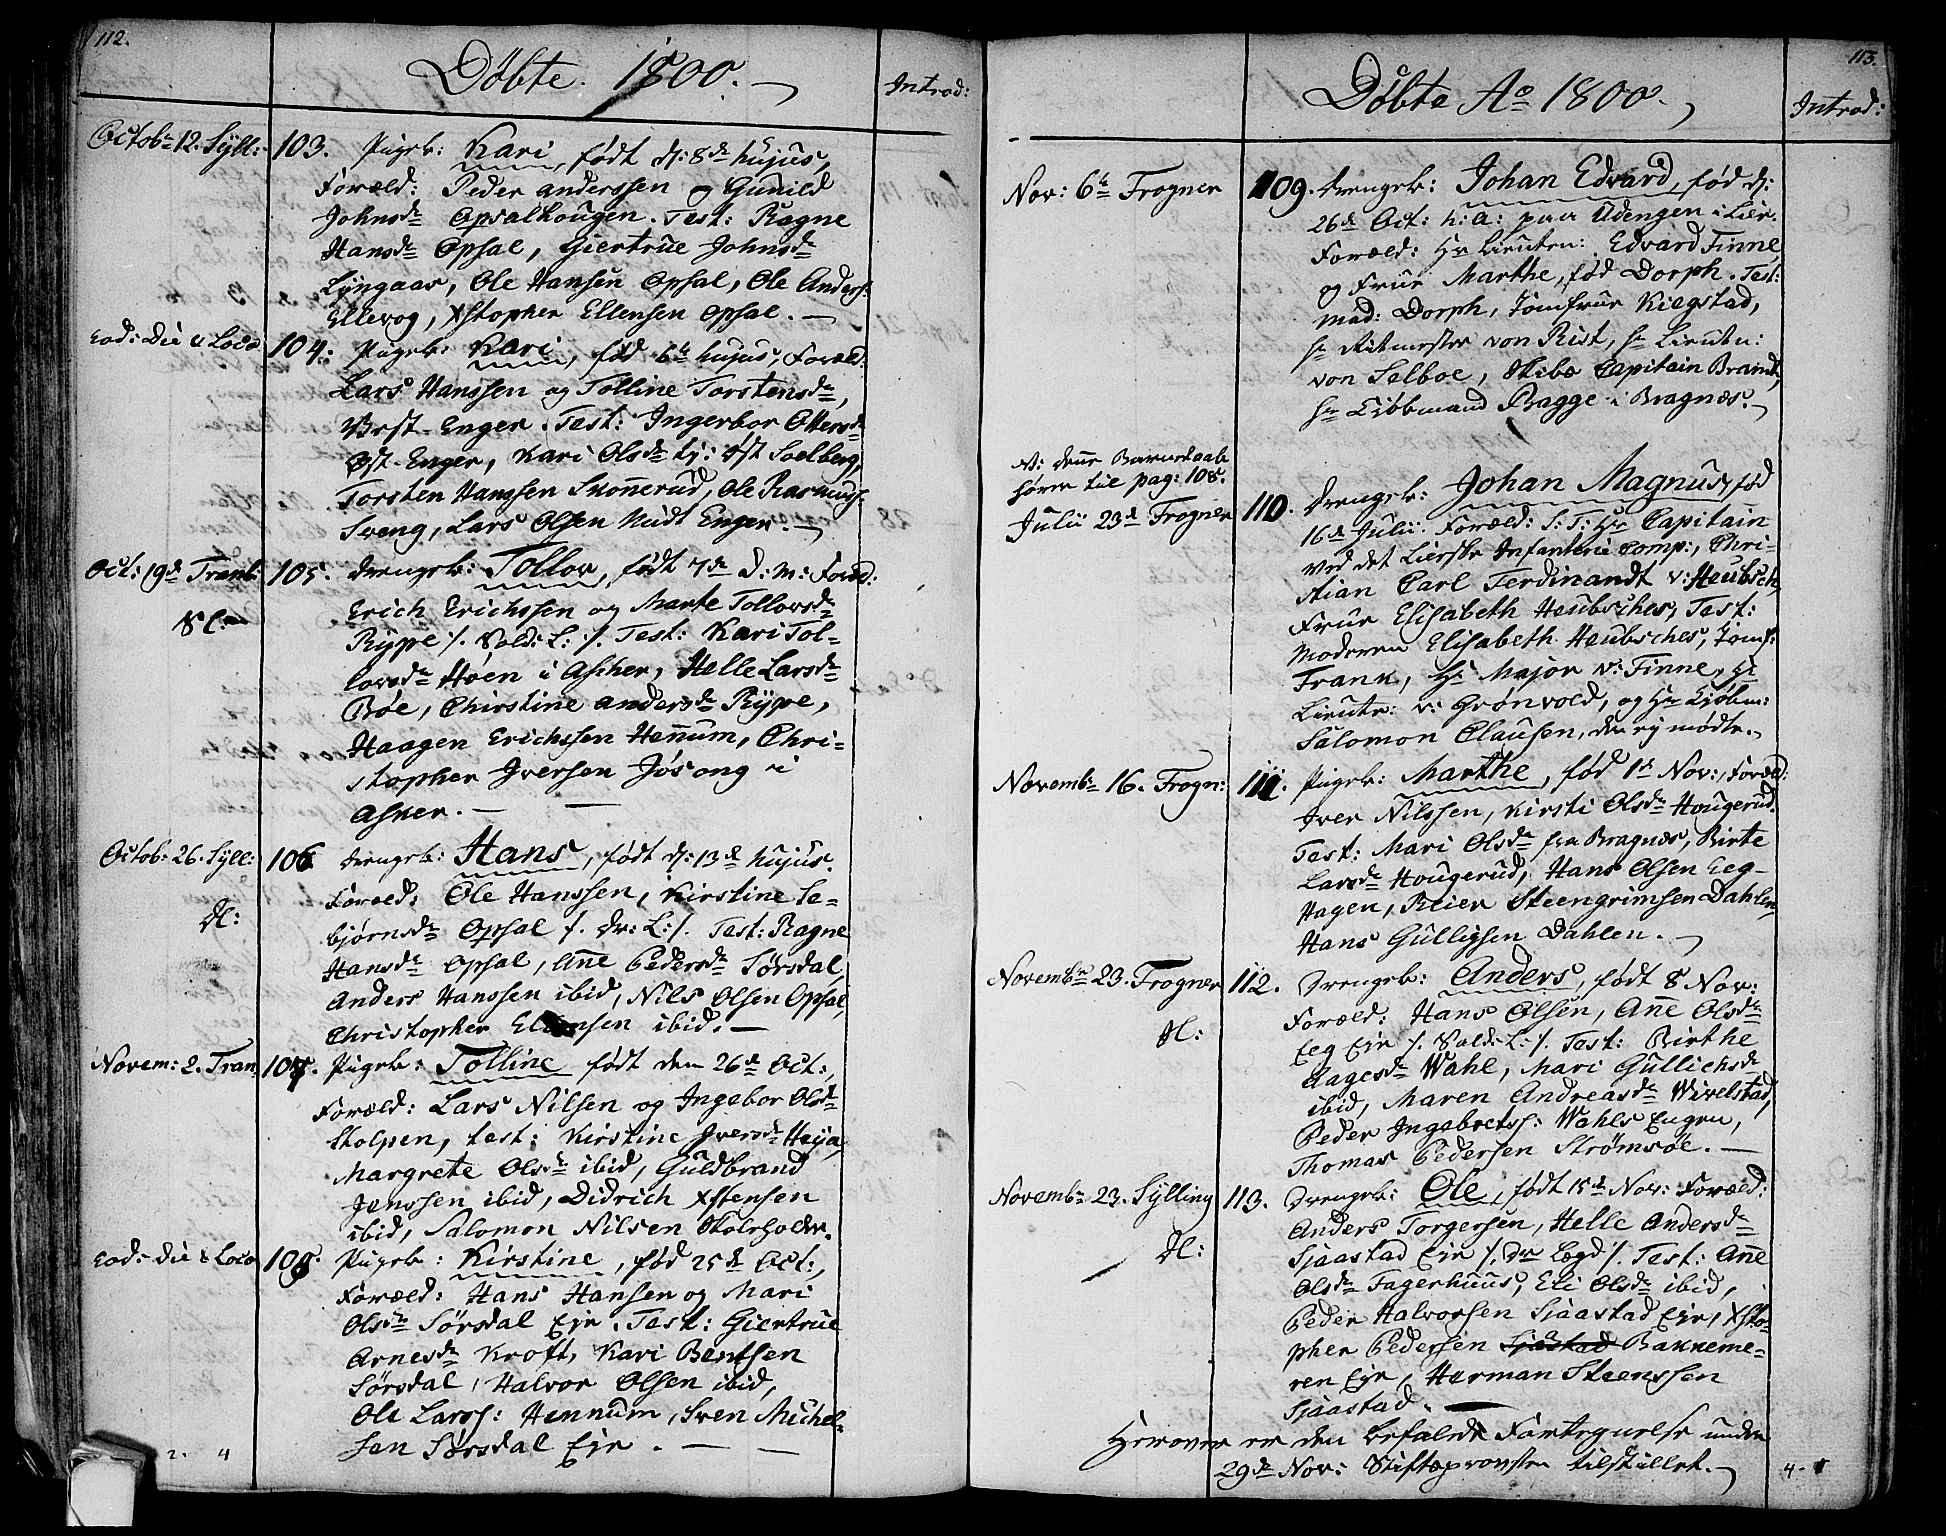 112.
Döbte. 1800.
Introd:
Octobr 12. Syll: 103. Pigeb: Kari, født d: 8de hujus,
Foræld: Peder anderssen og Gunild
Johnsdr Opsalhougen. Test: Ragne
Hansdr Opsal, Giertrue Johnsdr
Lyngaas, Ole Hansen Opsal, Ole Anders:
Ellevog, Xstopher Ellensen Opsal.
Eod: Die & Loco 104. Pigeb: Kari, fød 6te hujus, Foræld:
Lars Hanssen og Tolline Torstensdr,
Vest-Enger. Test: Ingerbor Ottersdr
Øst-Enger, Kari Olsdr tj: Øst Soelberg,
Torsten Hanssen Skonnerud, Ole Rasmuss:
Sveng, Lars Olsen Nedt Enger.
Oct: 19de Tranb: 105. Drengeb: Tollov, født 7de D: M: Foræld:
Sl:
Erich Erichssen og Marte Tollovsdr
Rype /. Sold: L: /. Test: Kari Tol-
lovsdr Høen i Asker, Helle Larsdr
Bøe, Chirstine andersdr Rype,
Haagen Erichssen Hennum, Chri-
stopher Iversen Jøsong i
Asker.
Octob: 26. Syll: 106 Drengeb: Hans, født d: 13de hujus.
Dl:
Foræld: Ole Hanssen, Kirstine Se-
bjørnsdr Opsal /. Dr: L: /. Test: Ragne
Hansdr Opsal, Anne Pedersdr Sørsdal
Anders Hanssen ibid, Nils Olsen Opsal,
Christopher Ellensen ibid.
Novem: 2. Tran, 107. Pigeb: Tolline født den 26de Oct:,
Foræld: Lars Nilsen og Ingebor Olsdr
Stolpen, test: Kirstine Iversdr Heija,
Margrete Olsdr ibid, Guldbrand
Jenssen ibid, Didrich Xstensen
ibid, Salomon Nilsen Skoleholder.
Eod: Die & Loco 108. Pigeb: Kirstine, fød 25de Oct:,
Foræld: Hans Hansen og Mari
Olsdr Sørsdal Eje. Test: Giertrue
Arnesdr Kroft, Kari Bentsen
Sørsdal, Halvor Olsen ibid,
Ole Larss: Hennum, Sven Michel-
sen Sørsdal Eje.
2. 4
113.
Döbte Ao 1800.
Introd:
Nov: 6te Frogner 109. Drengeb: Johan Edvard, fød d:
26de Oct: h: a: paa Udengen i Lier.
Foræld: Hr Lieuten: Edvard Finne
og Frue Marthe, fød Dorph. Test:
Mad: Dorph, Jomfrue Kiegstad,
hr Ritmester von Rist, hr Lieuten:
von Selboe, Skibs Capitain Brandt,
hr Kjøbmand Bagge i Bragnæs.
N: denne Barnedaab
hører til pag: 108.
Julii 23de Frogner 110. Drengeb: Johan Magnus, fød
16de Julii. Foræld: S: T: Hr Capitain
ved det Lierske Infanterie Comp:, Chri-
stian Carl Ferdinandt v: Heubsch,
Frue Elisabeth Heubsches, Test:
Moderen Elisabeth Heubsches, Jomf:
Frank, Hr Major v: Finne, Hr
Lieute: v: Grönvold, og Hr Kjøbm:
Salomon Clausen, der ej mødte.
Novembr 16. Frogn: 111. Pigeb: Marthe, fød 1te Nov:, Foræld:
Iver Nilssen, Kirsti Olsdr Hougerud.
Test: Mari Olsdr fra Bragnæs, Birte
Larsdr Hougerud, Hans Olsen Eeg-
Hagen, Reier Steengrimsen Dahlen,
Hans Gulligsen Dahlen.
Novembr 23. Frogner 112. Drengeb: Anders, født 8 Nov:
Dl:
Foræld: Hans Olsen, Anne Olsdr
Eeg Eje /. Sold: L: /. Test: Birthe
Aagesdr Wahl, Mari Gullichsdr
ibid, Maren Andreasdr Wivelstad,
Peder Ingebretss: Wahls Engen,
Thomas Pedersen Strømsøe.
Novembr 23. Sylling 113. Drengeb: Ole, født 15de Nov: Foræld:
Dl:
Anders Torgersen, Helle Andersdr
Sjaastad Eje /. Dr Lægd /. Test: Anne
Olsdr Fagerhuus, Eli Olsdr ibid,
Peder Halvorsen Sjaastad Eje, Xsto-
pher Pedersen Sjastad Bakneme-
ren Eje, Herman Steenssen
Sjaastad.
Herover er den befalede Fortegnelse under
29de Nov: Stiftsprovsten tilstillet.
4